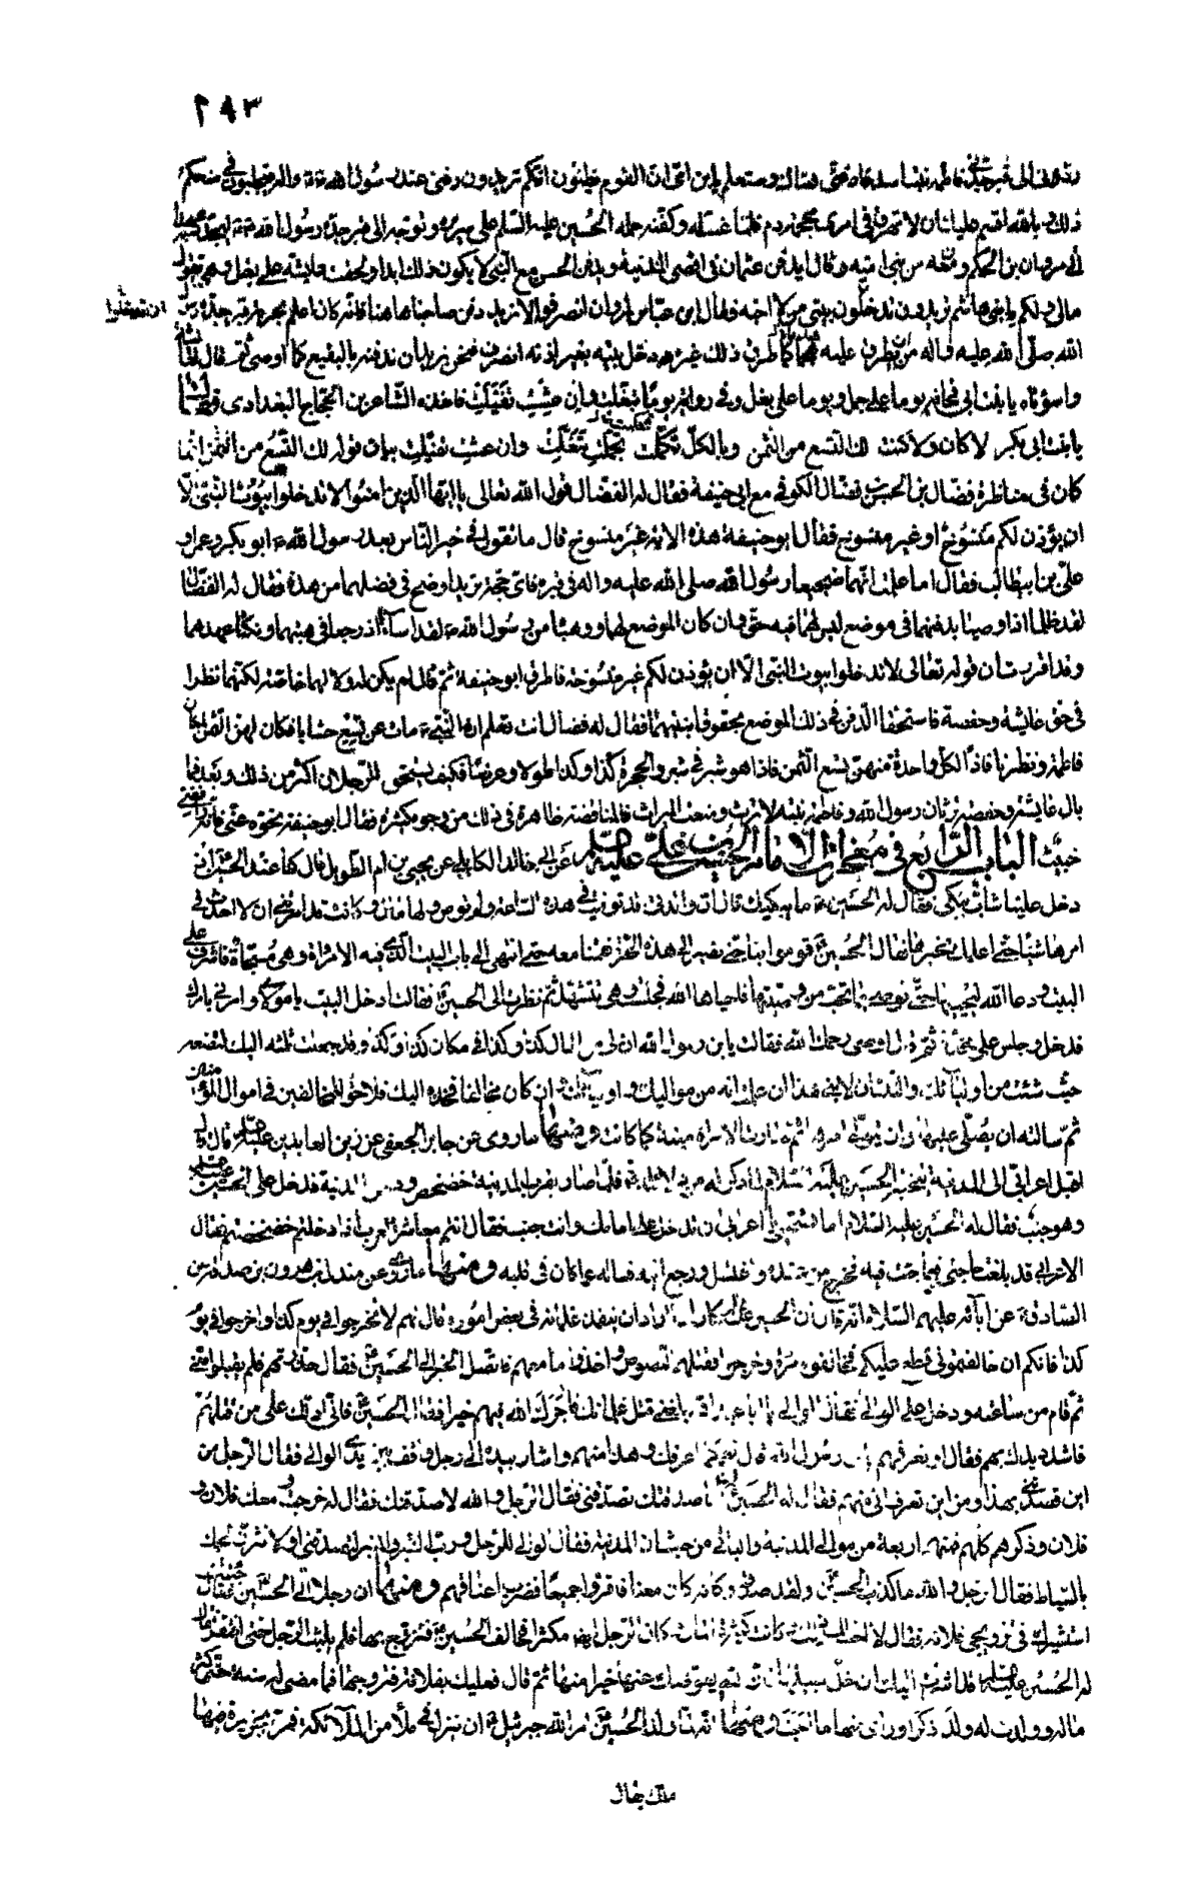 ٢٩٣
ذلك وبالله اقسم عليك ان لا تهرق في امري محجمة دم فلما غسله وكفنه حمله الحسين عليه السلم على سريره وتوجه الى قبر جده رسول الله
مروان بن الحكم ومن معه من بني امية وقال ايدفن عثمان في اقصى المدينة ويدفن الحسن مع النبي لا يكون ذلك ابدا ولحقت عايشة على بغل وهي تقول
مالي ولكم يا بني هاشم تريدون ان تدخلوا بيتي من لا احب فقال ابن عباس لمروان انصرفوا لا نريد دفن صاحبنا هاهنا فانه كان اعلم بحرمة قبر جده رسول
الله صلى الله عليه واله من ان يطرق عليه هجما كما طرق ذلك غيره ودخل بيته بغير اذنه انصرف فنحن نريد ان ندفنه بالبقيع كما اوصى ثم قال لعايشة
واسوأتاه يوما على جمل ويوما على بغل وفي رواية يوما تبغلت وان عشت تفيلت فاخذه الشاعر بن الحجاج البغدادي فقال
يا بنت ابي بكر لا كان ولا كنت لك التسع من الثمن وبالكل تملكت تجملت تبغلت وان عشت تفيلت بيان قوله لك التسع من الثمن انما
كان في مناظرة فضال بن الحسن بن فضال الكوفي مع ابي حنيفة فقال له الفضال قول الله تعالى يا ايها الذين امنوا لا تدخلوا بيوت النبي الا
ان يؤذن لكم منسوخ او غير منسوخ فقال ابو حنيفة هذه الاية غير منسوخة قال ما تقول في خير الناس بعد رسول الله ابو بكر وعمر او
علي بن ابيطالب فقال اما علمت انهما ضجيعا رسول الله صلى الله عليه واله في قبره فاي حجة تريد اوضح في فضلهما من هذه فقال له الفضال
لقد ظلما اذ اوصيا بدفنهما في موضع ليس لهما فيه حق وان كان الموضع لهما ووهباه من رسول الله لقد اساءا اذ رجعا في هبتهما ونكثا عهدهما
وقد اقررت ان قوله تعالى لا تدخلوا بيوت النبي الا ان يؤذن لكم غير منسوخة فاطرق ابو حنيفة ثم قال لم يكن له ولا لهما خاصة لكنهما نظرا
في حق عايشة وحفصة فاستحقا الدفن في ذلك الموضع بحقوق ابنتيهما فقال له فضال انت تعلم ان النبي مات عن تسع حشايا فكان لهن الثمن
فاطمة ونظرنا فاذا لكل واحدة منهن تسع الثمن فاذا هو شبر في شبر والحجرة كذا وكذا طولا وعرضا فكيف يستحق الرجلان اكثر من ذلك وبعد فما
بال عايشة وحفصة ترثان رسول الله وفاطمة بنته لا ترث ومنعت الميراث فالمناقضة ظاهرة في ذلك من وجوه كثيرة فقال ابو حنيفة نحوه عني فانه
خبيث الباب الرابع في معجزات الامام الحسين بن علي عليه السلم عن ابي خالد الكابلي عن يحيى بن ام الطويل قال كنا عند الحسين اذ
دخل علينا شاب يبكي فقال له الحسين ما يبكيك قال ان والدتي توفيت في هذه الساعة ولم توص ولها مال وكانت قد امرتني ان لا احدث في
امرها شيئا حتى اعلمك خبرها فقال الحسين قوموا بنا حتى نصير الى هذه الحرة فقمنا معه حتى انتهى الى باب البيت الذي فيه الامراة وهي مسجاة فاشرف على
البيت ودعا الله ليحييها حتى توصي بما تحب من وصيتها فاحياها الله فجلست وهي تتشهد ثم نظرت الى الحسين فقالت ادخل البيت يا مولاي وامرني بامرك
فدخل وجلس على مخدة ثم قال اوصي رحمك الله فقالت يابن رسول الله ان لي من المال كذا وكذا في مكان كذا وكذا وقد جعلت ثلثه اليك لتضعه
حيث شئت من اوليائك والثلثان لابني هذا ان علمت انه من مواليك واوليائك وان كان مخالفا فخذه اليك فلا حق للمخالفين في اموال المؤمنين
ثم سالته ان يصلي عليها وان يتولى امرها ثم صارت الامراة ميتة كما كانت ومنها ما روى عن جابر الجعفي عن زين العابدين عليه السلم قال
اقبل اعرابي الى المدينة ليختبر الحسين عليه السلام لما ذكر له من دلايله فلما صار بقرب المدينة خضخض ودخل المدينة فدخل على الحسين
وهو جنب فقال له الحسين عليه السلام اما تستحيي يا اعرابي ان تدخل على امامك وانت جنب فقال انتم معاشر العرب اذا دخلتم خضخضتم فقال
الاعرابي قد بلغت حاجتي فيما جئت فيه فخرج من عنده واغتسل ورجع اليه فساله عما كان في قلبه ومنها ما روى عن مندل بن هرون بن صدقة عن
الصادق عن ابائه عليهم السلام انه قال ان الحسين كان اذا اراد ان ينفذ غلمانه في بعض اموره قال لهم لا تخرجوا في يوم كذا واخرجوا في يوم
كذا فانكم ان خالفتموني قطع عليكم فخالفوه مرة وخرجوا فقتلهم لصوص واخذوا ما معهم فاتصل الخبر الى الحسين فقال لقد حذرتهم فلم يقبلوا مني
ثم قام من ساعته ودخل على الوالي فقال الوالي يا ابا عبد الله بلغني قتل غلمانك فآجرك الله فيهم خيرا فقال الحسين فاني ادلك على من قتلهم
فاشدد يدك بهم فقال او تعرفهم يابن رسول الله قال نعم كما اعرفك وهذا منهم واشار بيده الى رجل واقف بين يدي الوالي فقال الرجل من
اين قصدتني بهذا ومن اين تعرف اني منهم فقال له الحسين ان صدقتك تصدقني فقال الرجل والله لاصدقنك فقال له خرجت ومعك فلان و
فلان وذكرهم كلهم فمنهم اربعة من موالي المدينة والباقي من حبشان المدينة فقال الوالي للرجل ورب القبر والمنبر لتصدقني او لانثرن لحمك
بالسياط فقال الرجل والله ما كذب الحسين ولقد صدق وكانه كان معنا فاقروا جميعا فضرب اعناقهم ومنها ان رجلا اتى الحسين فقال
استشيرك في تزويجي فلانة فقال لا احب ذلك وكانت كثيرة المال وكان الرجل ايضا مكثرا فخالف الحسين فتزوج بها فلم يلبث الرجل حتى افتقر فقال
له الحسين عليه السلم قد اشرت اليك ان خل سبيلها فان الله تعالى يعوضك عنها خيرا منها ثم قال فعليك بفلانة فتزوجها فما مضى له سنة حتى كثر
ماله وولدت له ولد ذكرا وراى منها ما احب ومنها انه لما ولد الحسين امر الله جبرئيل ان ينزل في ملأ من الملائكة فمر بجزيرة فيها
ملك يقال